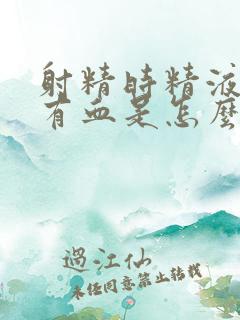 射精時精液
有血是怎麼
過江仙
未经同意禁止转载